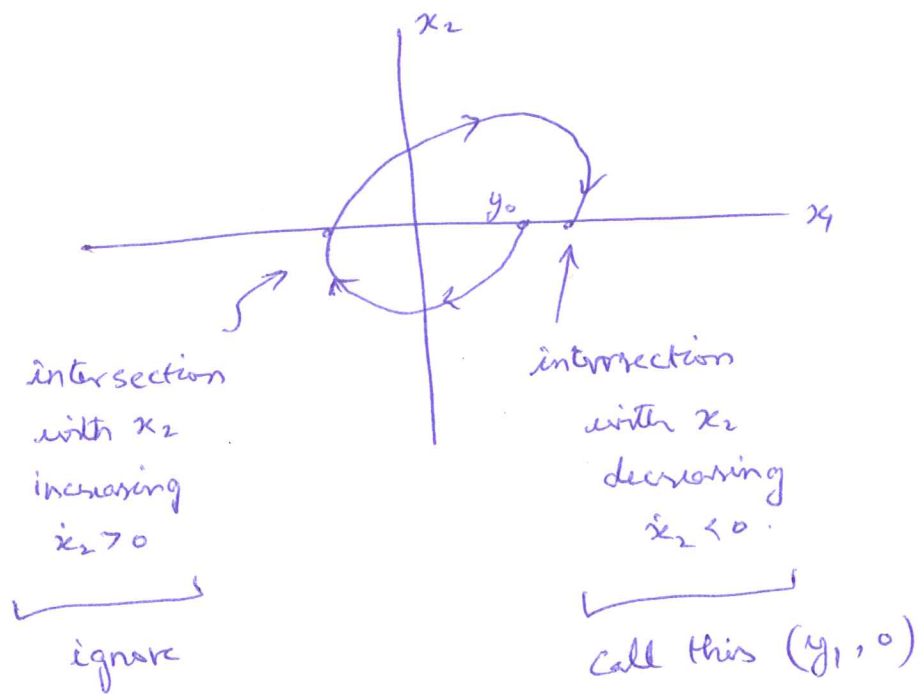 x₂
y₀
x₁
intersection
with x₂
increasing
ẋ₂ > 0
ignore
intersection
with x₂
decreasing
ẋ₂ < 0.
call this (y₁, 0)